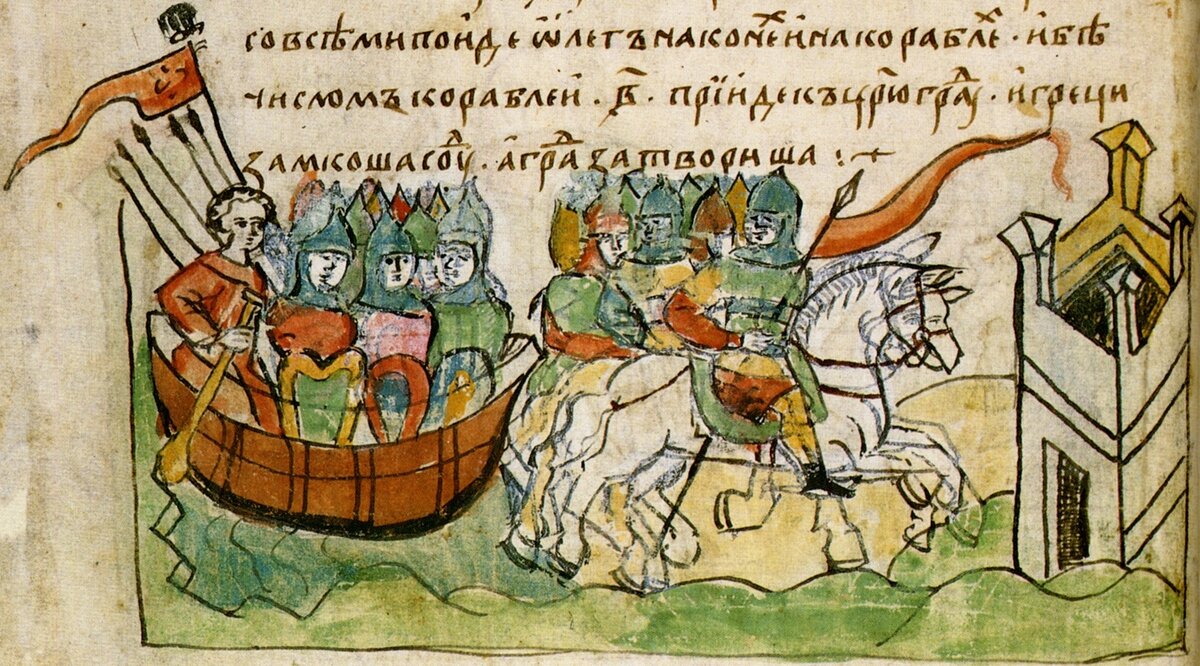 со всѣми поиде ѡлегъ на конеⷯ и на кораблеⷯ · и бѣ
числомъ кораблеи · в҃ · прїиде къ цр҃югра́ⷣу · и греци
замкоша соуⷣ · а граⷣ затвориша :~